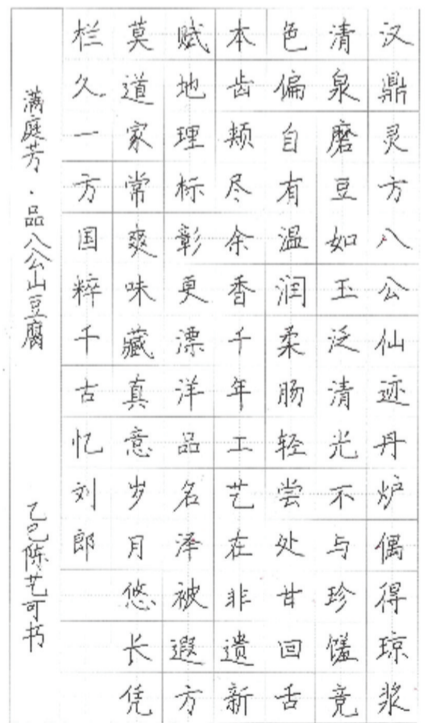 汉鼎灵方八公仙迹丹炉偶得琼浆
清泉磨豆如玉泛清光不与珍馐竞
色偏自有温润柔肠轻尝处甘回舌
本齿颊尽余香千年工艺在非遗新
赋地理标彰更漂洋品名泽被遐方
莫道家常爽味藏真意岁月悠长凭
栏久一方国粹千古忆刘郎
满庭芳·品八公山豆腐
乙巳陈艺可书